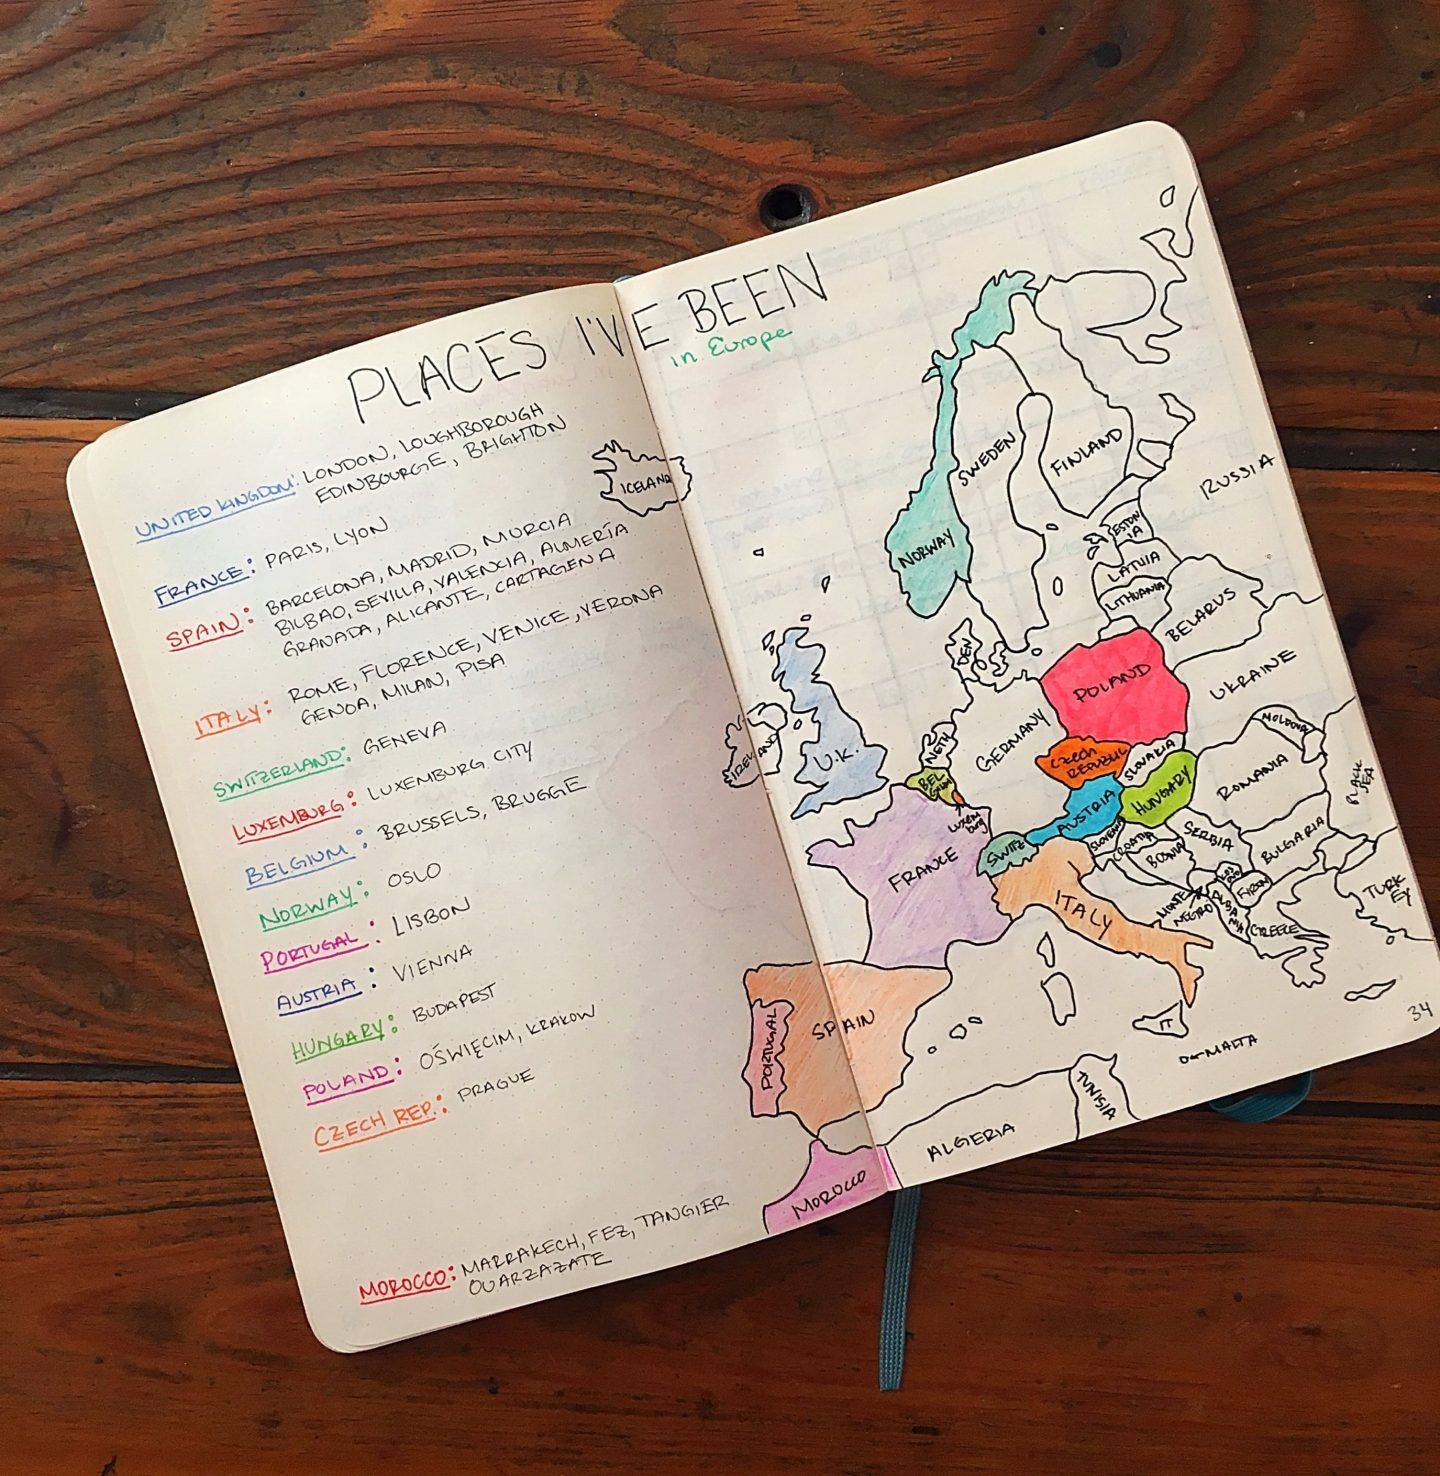 PLACES I'VE BEEN
in Europe
UNITED KINGDOM: LONDON, LOUGHBOROUGH
EDINBOURGE, BRIGHTON
FRANCE: PARIS, LYON
SPAIN: BARCELONA, MADRID, MURCIA
BILBAO, SEVILLA, VALENCIA, ALMERÍA
GRANADA, ALICANTE, CARTAGENA
ITALY: ROME, FLORENCE, VENICE, VERONA
GENOA, MILAN, PISA
SWITZERLAND: GENEVA
LUXEMBURG: LUXEMBURG CITY
BELGIUM: BRUSSELS, BRUGGE
NORWAY: OSLO
PORTUGAL: LISBON
AUSTRIA: VIENNA
HUNGARY: BUDAPEST
POLAND: OŚWIĘCIM, KRAKOW
CZECH REP: PRAGUE
MOROCCO: MARRAKECH, FEZ, TANGIER
OUARZAZATE
ICELAND
NORWAY
SWEDEN
FINLAND
RUSSIA
ESTON
IA
LATVIA
LITHUANIA
BELARUS
DEN
POLAND
UKRAINE
IRELAND
U.K.
NETH
GERMANY
CZECH
REPUBLIC
SLOVAKIA
MOLDOVA
BEL
GIUM
LUXEM
BURG
AUSTRIA
HUNGARY
ROMANIA
BLACK
SEA
FRANCE
SWITZ
SLOVENIA
CROATIA
BOSNIA
SERBIA
BULGARIA
ITALY
MONTE
NEGRO
KOS
OVO
FYROM
ALBA
NIA
GREECE
TURK
EY
PORTUGAL
SPAIN
IT
MALTA
MOROCCO
ALGERIA
TUNISIA
34